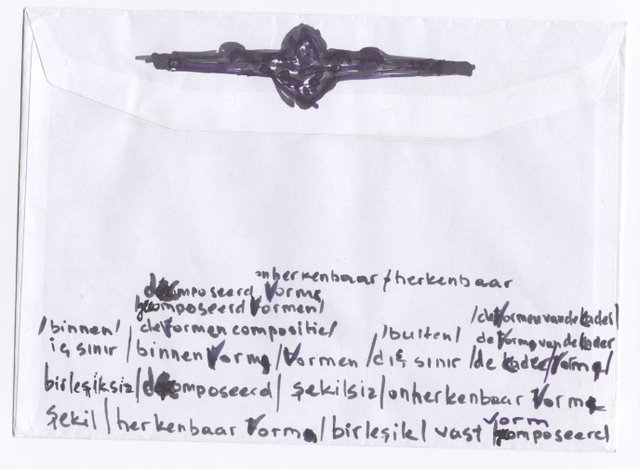 onherkenbaar / herkenbaar
decomposeerd Vorme
gecomposeerd Vormen/
/binnen/ de Vormen compositie/ /buiten/ /de Vormen van de kader/
de Vorme van de kader
iç sınır /binnen Vorme/ Vormen /dış sınır /de kader Vorme/
birleşiksiz/decomposeerd/ şekilsiz/onherkenbaar Vorme
şekil/herkenbaar Vorme/birleşik/ vast Vorm gecomposeerd